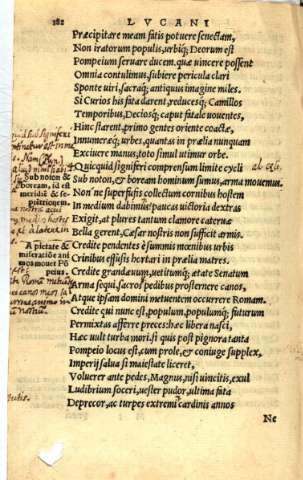 182 LVCANI
Præcipitare meam fatis potuere senectam,
Non iratorum populis, urbiq; Deorum est
Pompeium seruare ducem. quæ uincere possent
Omnia contulimus. subiere pericula clari
Sponte uiri, sacraq; antiquus imagine miles.
Si Curios his fata darent, reducesq; Camillos
Temporibus, Deciosq; caput fatale uouentes,
Hinc starent. primo gentes oriente coactæ,
Innumeræq; urbes, quantas in prælia nunquam
Exciuere manus. toto simul utimur orbe.
Quicquid signiferi comprensum limite cæli
Sub noton, & borean hominum sumus, arma mouemus.
Non ne superfusis collectum cornibus hostem
In medium dabimus? paucas uictoria dextras
Exigit, at plures tantum clamore cateruæ
Bella gerent. Cæsar nostris non sufficit armis.
Credite pendentes è summis mœnibus urbis
Crinibus effusis hortari in prælia matres.
Credite grandæuum, uetitumq; ætate Senatum
Arma sequi, sacros pedibus prosternere canos,
Atque ipsam domini metuentem occurrere Romam.
Credite qui nunc est, populum, populumq; futurum
Permixtas afferre preces: hæc libera nasci,
Hæc uult turba mori. si quis post pignora tanta
Pompeio locus est, cum prole, & coniuge supplex,
Imperij salua si maiestate liceret,
Voluerer ante pedes. Magnus, nisi uincitis, exul
Ludibrium soceri, uester pudor, ultima fata
Deprecor, ac turpes extremi cardinis annos
Ne
Sub noton &
boream, id est
meridiē & se-
ptētrionem.
A pietate &
miseratiōe ani
mos mouet Pō
peius.